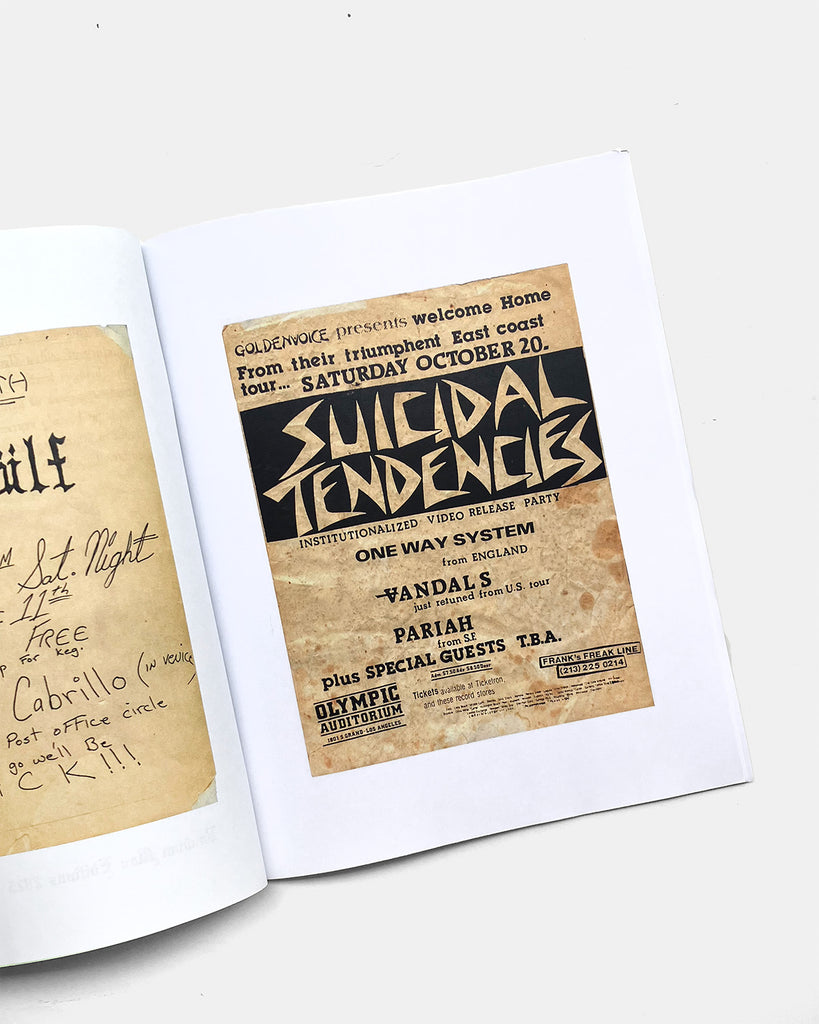 Sat. Night
11th
FREE
For keg.
Cabrillo (in Venice)
Post office circle
go we'll Be
GOLDENVOICE presents Welcome Home
From their triumphent East coast
tour... SATURDAY OCTOBER 20.
SUICIDAL
TENDENCIES
INSTITUTIONALIZED VIDEO RELEASE PARTY
ONE WAY SYSTEM
from ENGLAND
VANDALS
just retuned from U.S. tour
PARIAH
from S.F.
plus SPECIAL GUESTS T.B.A.
Adm. $7.50 Adv $8.50 Door
FRANK'S FREAK LINE
(213) 225 0214
OLYMPIC
AUDITORIUM
1801 S. GRAND · LOS ANGELES
Tickets available at Ticketron,
and these record stores